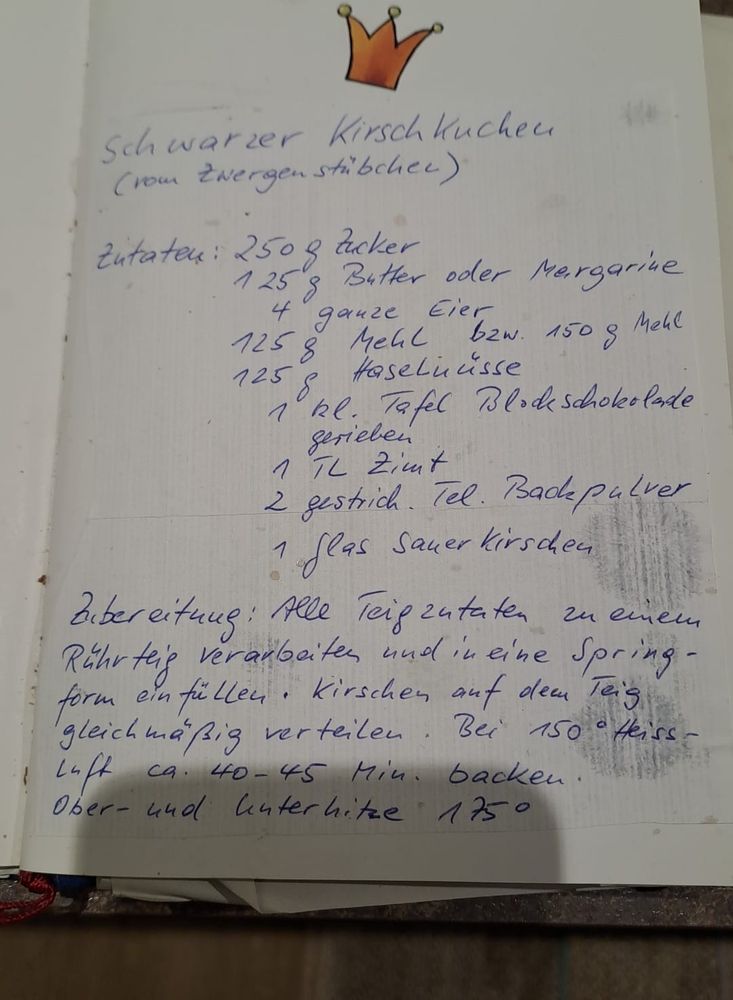 Schwarzer Kirschkuchen
(vom Zwergenstübchen)
Zutaten: 250 g Zucker
125 g Butter oder Margarine
4 ganze Eier
125 g Mehl bzw. 150 g Mehl
125 g Haselnüsse
1 kl. Tafel Blockschokolade
gerieben
1 TL Zimt
2 gestrich. Tel. Backpulver
1 Glas Sauerkirschen
Zubereitung: Alle Teigzutaten zu einem
Rührteig verarbeiten und in eine Spring-
form einfüllen. Kirschen auf dem Teig
gleichmäßig verteilen. Bei 150° Heiss-
luft ca. 40-45 Min. backen.
Ober- und Unterhitze 175°